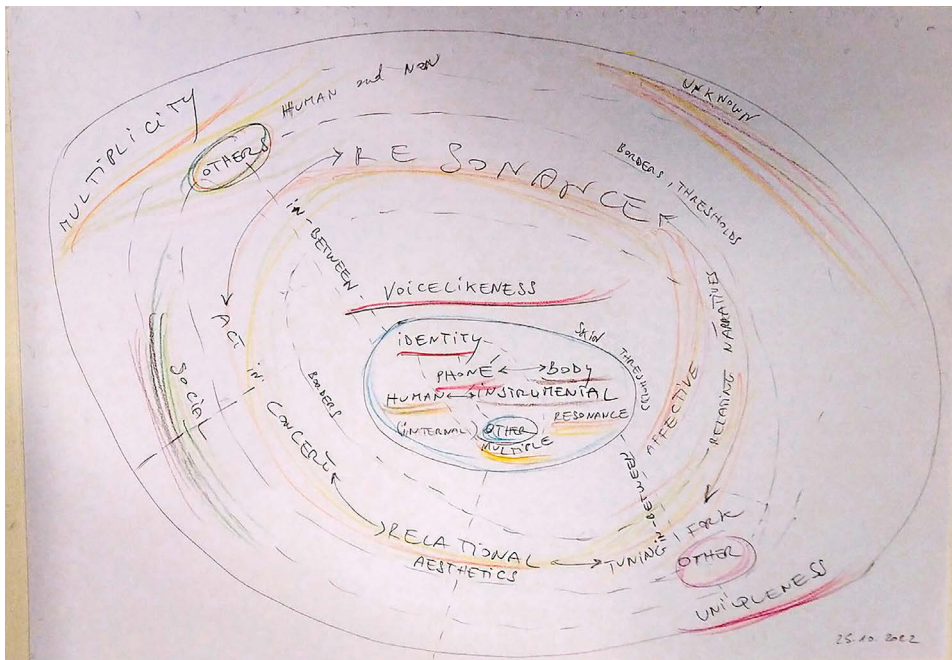 MULTIPLICITY
OTHERS
HUMAN and NON
UNKNOWN
RESONANCE
BORDERS, THRESHOLDS
IN-BETWEEN
VOICELIKENESS
IDENTITY
Skin
THRESHOLDS
PHONE ↔ BODY
HUMAN ↔ INSTRUMENTAL
RESONANCE
(INTERNAL) OTHER
MULTIPLE
ACT IN CONCERT
BORDERS
SOCIAL
AFFECTIVE
RELATING NARRATIVES
IN-BETWEEN
RELATIONAL
AESTHETICS
TUNING FORK
OTHER
UNIQUENESS
25.10.2022